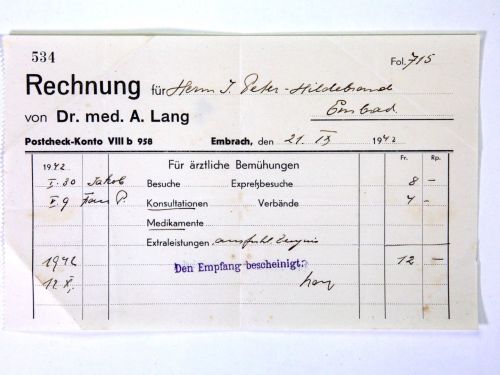 534
Fol. 715
Rechnung für Herrn J. Peter-Hildebrand
von Dr. med. A. Lang Embrach.
Postcheck-Konto VIII b 958 Embrach, den 21. IX 1942
1942 Für ärztliche Bemühungen Fr. Rp.
I. 30 Jakob Besuche Expreßbesuche 8 –
V. 9 Frau P. Konsultationen Verbände 4 –
Medikamente
Extraleistungen, ausführl. Zeugnis
1942 Den Empfang bescheinigt: 12 –
12. X. Lang